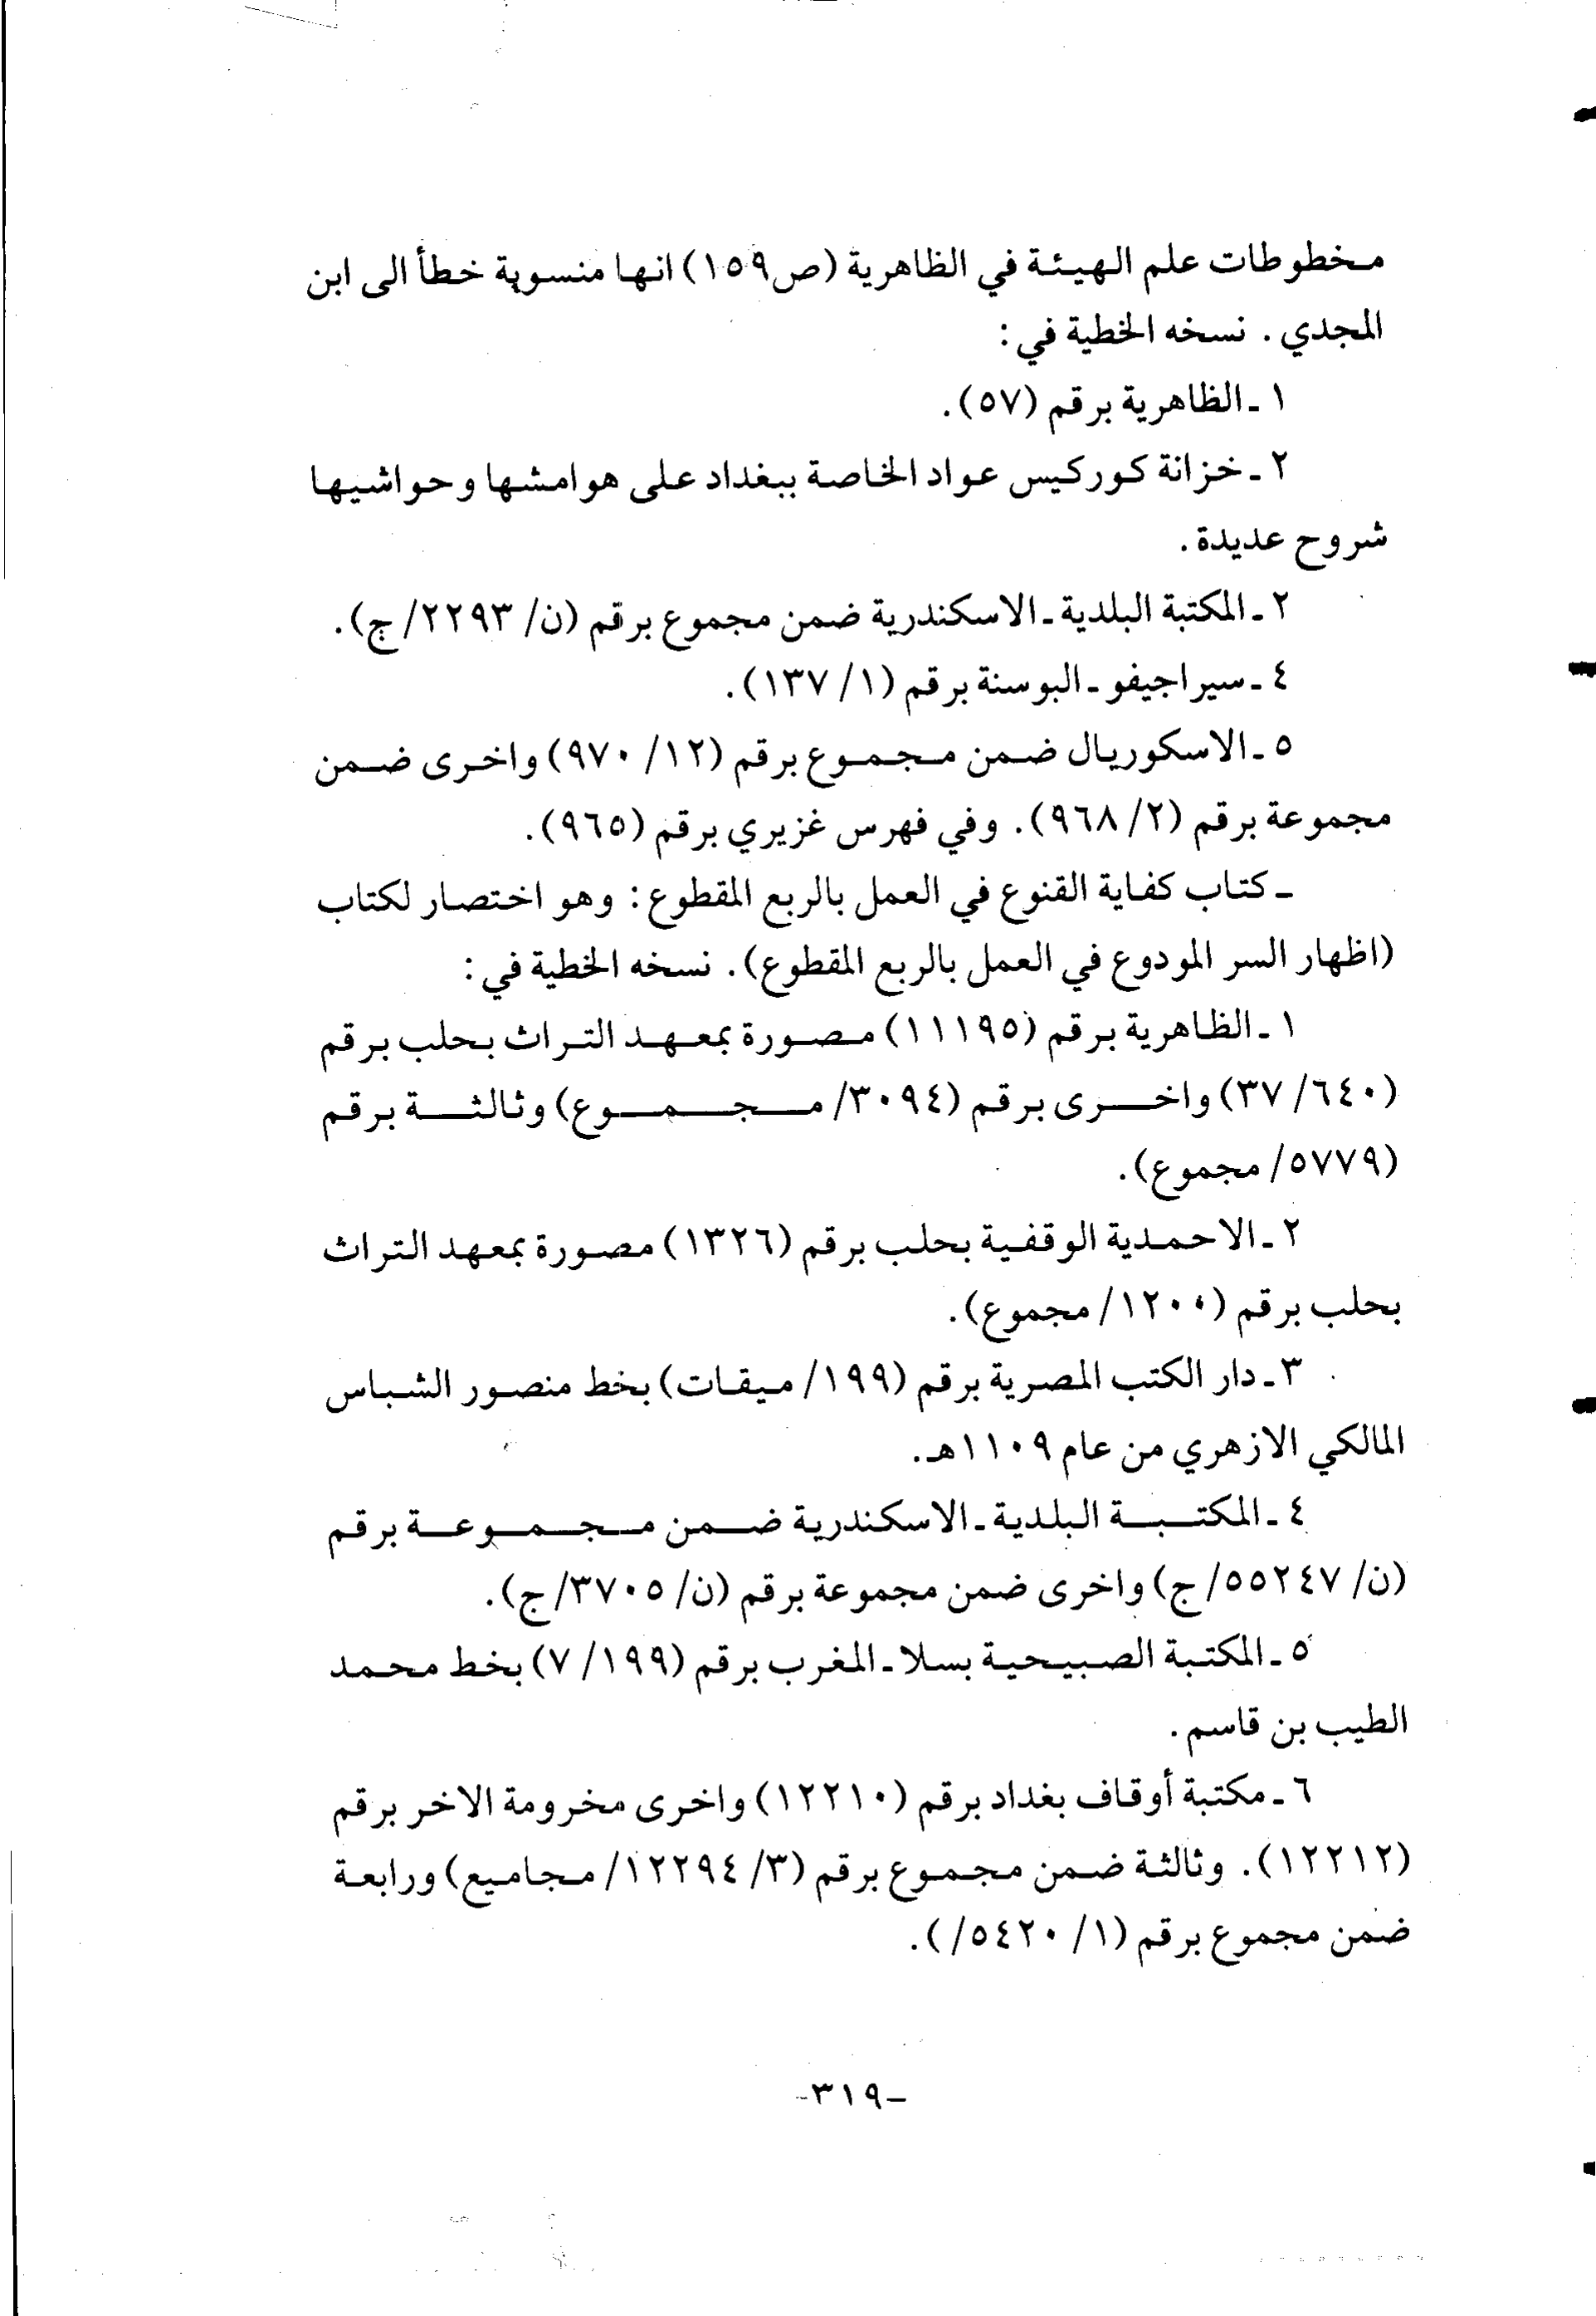 مخطوطات علم الهيئة في الظاهرية (ص١٥٩) انها منسوبة خطأ الى ابن
المجدي . نسخه الخطية في :
١ ـ الظاهرية برقم (٥٧).
٢ ـ خزانة كوركيس عواد الخاصة ببغداد على هوامشها وحواشيها
شروح عديدة .
٢ ـ المكتبة البلدية ـ الاسكندرية ضمن مجموع برقم (ن/ ٢٢٩٣/ ج).
٤ ـ سيراجيفو ـ البوسنة برقم (١/ ١٣٧).
٥ ـ الاسكوريال ضمن مجموع برقم (١٢/ ٩٧٠) واخرى ضمن
مجموعة برقم (٢/ ٩٦٨). وفي فهرس غزيري برقم (٩٦٥).
ـ كتاب كفاية القنوع في العمل بالربع المقطوع : وهو اختصار لكتاب
(اظهار السر المودوع في العمل بالربع المقطوع). نسخه الخطية في :
١ ـ الظاهرية برقم (١١١٩٥) مصورة بمعهد التراث بحلب برقم
(٦٤٠/ ٣٧) واخرى برقم (٣٠٩٤/ مجموع) وثالثة برقم
(٥٧٧٩/ مجموع).
٢ ـ الاحمدية الوقفية بحلب برقم (١٣٢٦) مصورة بمعهد التراث
بحلب برقم (١٢٠٠/ مجموع).
٣ ـ دار الكتب المصرية برقم (١٩٩/ ميقات) بخط منصور الشباس
المالكي الازهري من عام ١١٠٩هـ.
٤ ـ المكتبة البلدية ـ الاسكندرية ضمن مجموعة برقم
(ن/ ٥٥٢٤٧/ ج) واخرى ضمن مجموعة برقم (ن/ ٣٧٠٥/ ج).
٥ ـ المكتبة الصبيحية بسلا ـ المغرب برقم (١٩٩/ ٧) بخط محمد
الطيب بن قاسم .
٦ ـ مكتبة أوقاف بغداد برقم (١٢٢١٠) واخرى مخرومة الاخر برقم
(١٢٢١٢). وثالثة ضمن مجموع برقم (٣/ ١٢٢٩٤/ مجاميع) ورابعة
ضمن مجموع برقم (١/ ٥٤٢٠/ ).
-٣١٩-